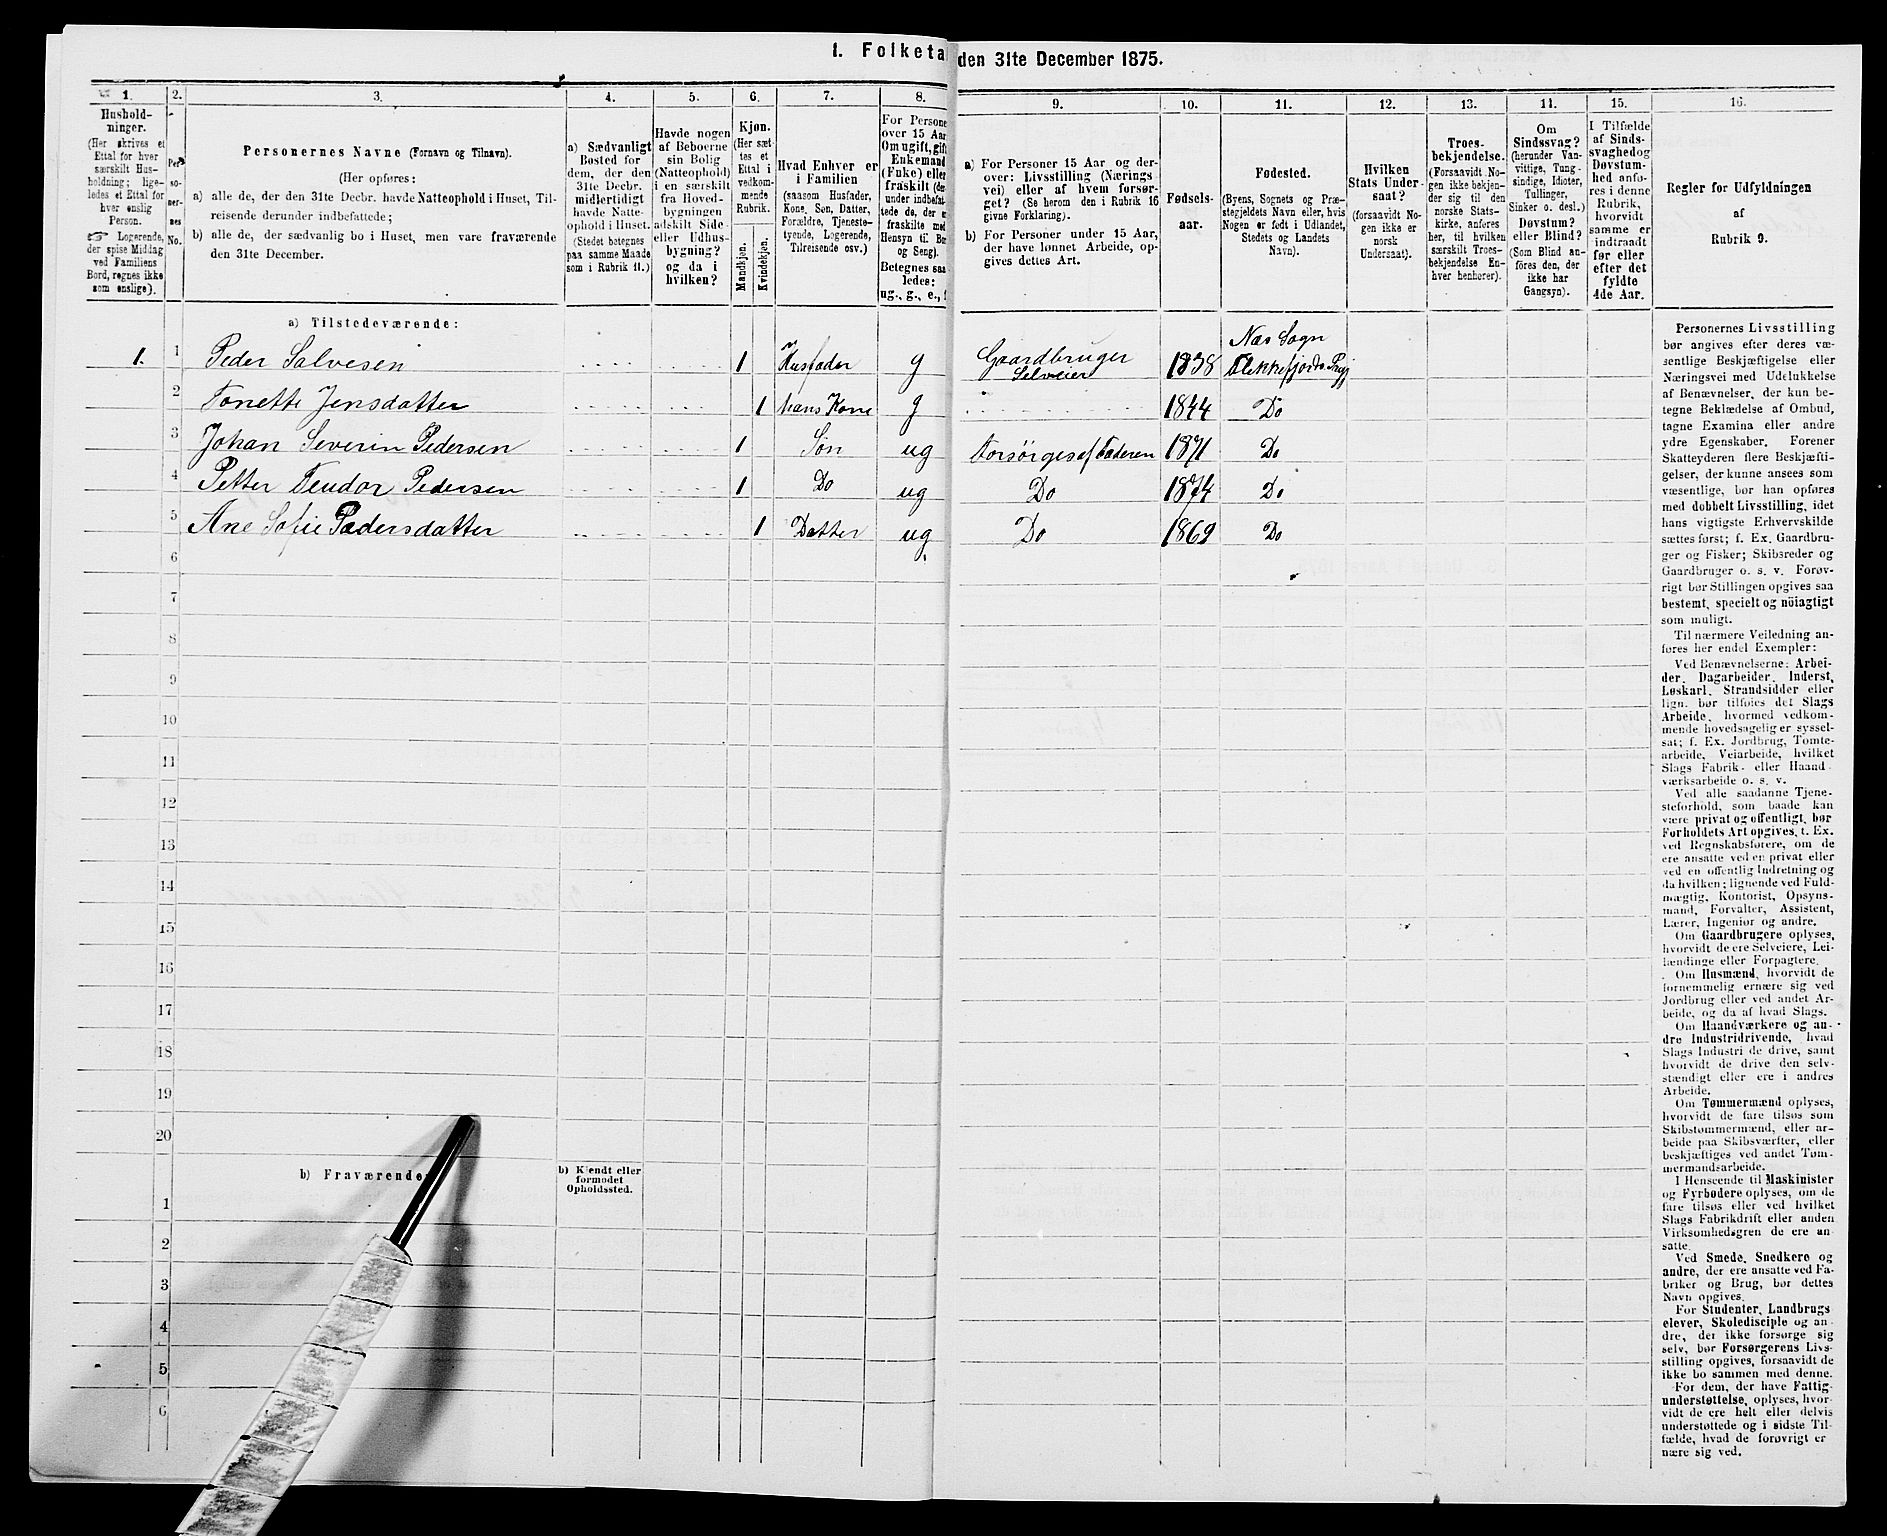 1. Folketa
den 31te December 1875.
1.
Hushold-
ninger.
(Her skrives et
Ettal for hver
særskilt Hus-
holdning; lige-
ledes et Ettal for
hver enslig
Person.
☞ Logerende,
der spise Middag
ved Familiens
Bord, regnes ikke
som enslige).
2.
Per
so-
ner-
nes
No.
3.
Personernes Navne (Fornavn og Tilnavn).
(Her opføres:
a) alle de, der den 31te Decbr. havde Natteophold i Huset, Til-
reisende derunder indbefattede;
b) alle de, der sædvanlig bo i Huset, men vare fraværende
den 31te December.
4.
a) Sædvanligt
Bosted for
dem, der den
31te Decbr.
midlertidigt
havde Natte-
ophold i Huset.
(Stedet betegnes
paa samme Maade
som i Rubrik 11.)
5.
Havde nogen
af Beboerne
sin Bolig
(Natteophold)
i en særskilt
fra Hoved-
bygningen
adskilt Side-
eller Udhus-
bygning?
og da i
hvilken?
6.
Kjøn.
(Her sæt-
tes et
Ettal i
vedkom-
mende
Rubrik.
Mandkjøn.
Kvindekjøn.
7.
Hvad Enhver er
i Familien
(saasom Husfader,
Kone, Søn, Datter,
Forældre, Tjeneste-
tyende, Logerende,
Tilreisende osv.)
8.
For Persone
over 15 Aar
Om ugift, gift
Enkemand
(Enke) elle
fraskilt (de
under indbefat
tede de, der e
fraskilte med
Hensyn til Bo
og Seng).
Betegnes saa
ledes:
ug., g., e., f
9.
a) For Personer 15 Aar og der-
over: Livsstilling (Nærings-
vei) eller af hvem forsør-
get? (Se herom den i Rubrik 16
givne Forklaring).
b) For Personer under 15 Aar,
der have lønnet Arbeide, op-
gives dettes Art.
10.
Fødsels-
aar.
11.
Fødested.
(Byens, Sognets og Præ-
stegjeldets Navn eller, hvis
Nogen er født i Udlandet,
Stedets og Landets
Navn).
12.
Hvilken
Stats Under-
saat?
(forsaavidt No-
gen ikke er
norsk
Undersaat).
13.
Troes-
bekjendelse.
(Forsaavidt No-
gen ikke bekjen-
der sig til den
norske Stats-
kirke, anføres
her, til hvilken
særskilt Troes-
bekjendelse En-
hver henhører).
14.
Om
Sindssvag?
(herunder Van-
vittige, Tung-
sindige, Idioter,
Tullinger,
Sinker o. desl.)
Døvstum?
eller Blind?
(Som Blind an-
føres den, der
ikke har
Gangsyn).
15.
I Tilfælde
af Sinds-
svaghed og
Døvstum-
hed anfø-
res i denne
Rubrik,
hvorvidt
samme er
indtraadt
før eller
efter det
fyldte
4de Aar.
16.
Regler for Udfyldningen
af
Rubrik 9.
a) Tilstedeværende:
1. 1 Peder Salvesen 1 Husfader g Gaardbruger Selveier 1838 Næs Sogn Flekkefjords Prgj
2 Tonette Jensdatter 1 hans Kone g 1844 Do
3 Johan Severin Pedersen 1 Søn ug Forsørges af Faderen 1871 Do
4 Petter Teudor Pedersen 1 Do ug Do 1874 Do
5 Ane Sofie Pedersdatter 1 Datter ug Do 1869 Do
6
7
8
9
10
11
12
13
14
15
16
17
18
19
20
b) Fraværende
b) Kjendt eller
formodet
Opholdssted.
1
2
3
4
5
6
Personernes Livsstilling
bør angives efter deres væ-
sentlige Beskjæftigelse eller
Næringsvei med Udelukkelse
af Benævnelser, der kun be-
tegne Beklædelse af Ombud,
tagne Examina eller andre
ydre Egenskaber. Forener
Skatteyderen flere Beskjæfti-
gelser, der kunne ansees som
væsentlige, bør han opføres
med dobbelt Livsstilling, idet
hans vigtigste Erhvervskilde
sættes først; f. Ex. Gaardbru-
ger og Fisker; Skibsreder og
Gaardbruger o. s. v. Forøv-
rigt bør Stillingen opgives saa
bestemt, specielt og nöiagtigt
som muligt.
Til nærmere Veiledning an-
føres her endel Exempler:
Ved Benævnelserne: Arbei-
der, Dagarbeider, Inderst,
Løskarl, Strandsidder eller
lign. bør tilføies det Slags
Arbeide, hvormed vedkom-
mende hovedsagelig er syssel-
sat; f. Ex. Jordbrug, Tomte-
arbeide, Veiarbeide, hvilket
Slags Fabrik- eller Haand-
værksarbeide o. s. v.
Ved alle saadanne Tjene-
steforhold, som baade kan
være privat og offentligt, bør
Forholdets Art opgives, t. Ex.
ved Regnskabsførere, om de
ere ansatte ved en privat eller
ved en offentlig Indretning og
da hvilken; lignende ved Fuld-
mægtig, Kontorist, Opsyns-
mand, Forvalter, Assistent,
Lærer, Ingeniør og andre.
Om Gaardbrugere oplyses,
hvorvidt de ere Selveiere, Lei-
lændinge eller Forpagtere.
Om Husmænd, hvorvidt de
fornemmelig ernære sig ved
Jordbrug eller ved andet Ar-
beide, og da af hvad Slags.
Om Haandværkere og an-
dre Industridrivende, hvad
Slags Industri de drive, samt
hvorvidt de drive den selv-
stændigt eller ere i andres
Arbeide.
Om Tømmermænd oplyses,
hvorvidt de fare tilsøs som
Skibstømmermænd, eller ar-
beide paa Skibsværfter, eller
beskjæftiges ved andet Tøm-
mermandsarbeide.
I Henseende til Maskinister
og Fyrbødere oplyses, om de
fare tilsøs eller ved hvilket
Slags Fabrikdrift eller anden
Virksomhedsgren de ere an-
satte.
Ved Smede, Snedkere og
andre, der ere ansatte ved Fa-
briker og Brug, bør dettes
Navn opgives.
For Studenter, Landbrugs
elever, Skoledisciple og an-
dre, der ikke forsørge sig
selv, bør Forsørgerens Livs-
stilling opgives, forsaavidt de
ikke bo sammen med denne.
For dem, der have Fattig-
understøttelse, oplyses, hvor-
vidt de ere helt eller delvis
understøttede og i sidste Til-
fælde, hvad de forøvrigt er
nære sig ved.